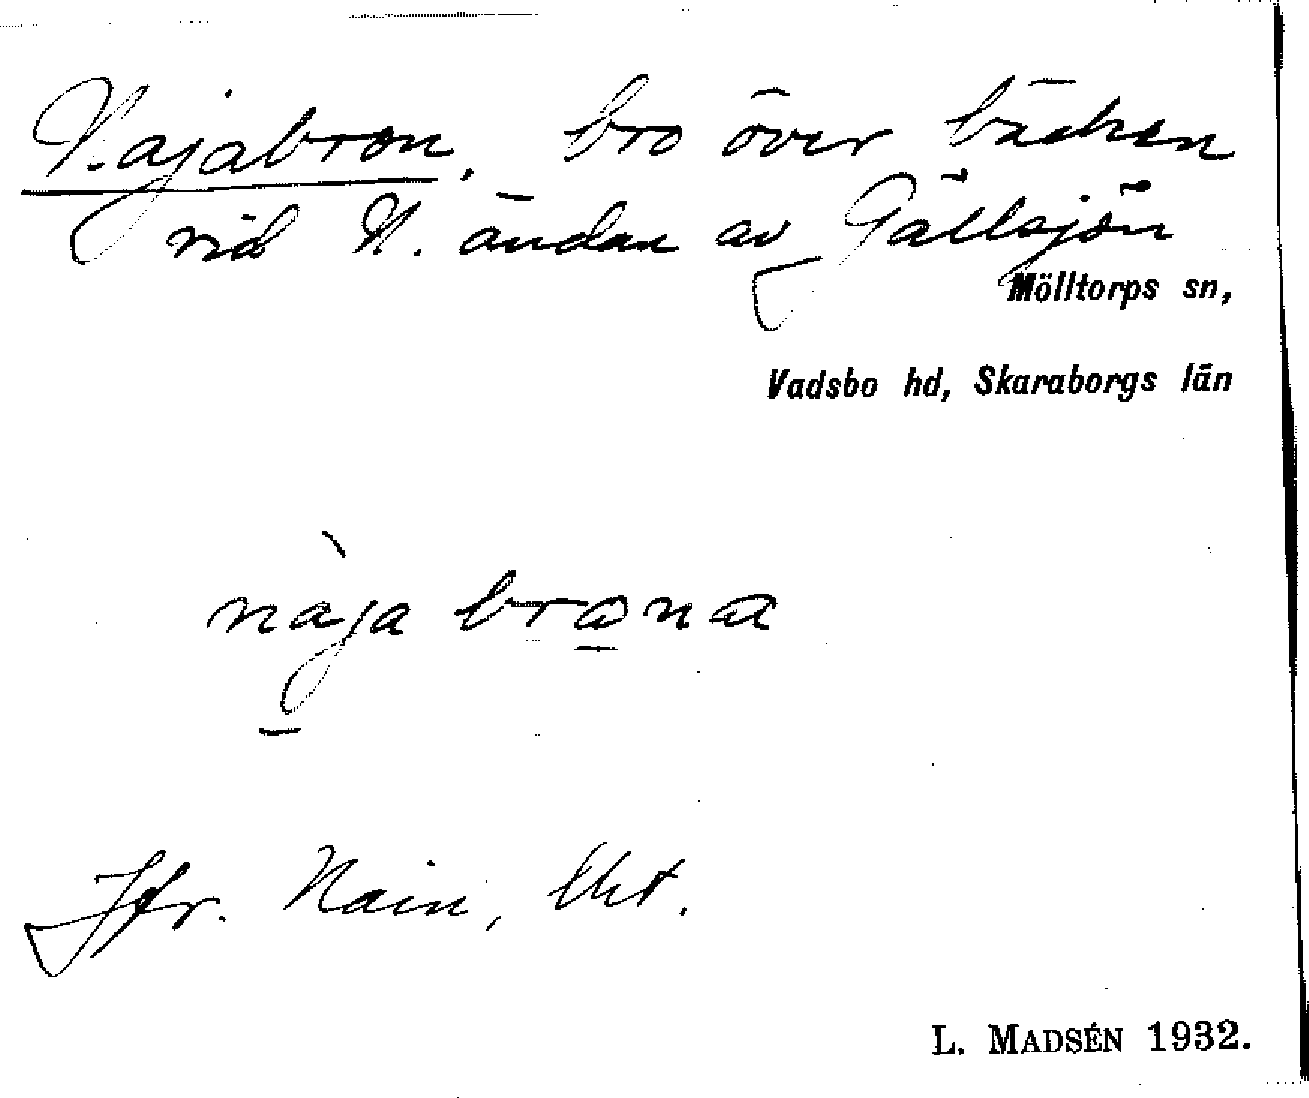 Najabron, bro över bäcken
vid N. ändan av Gällsjön
Mölltorps sn,
Vadsbo hd, Skaraborgs län
nàja brona
Jfr. Nain, Ukt.
L. MADSÉN 1932.